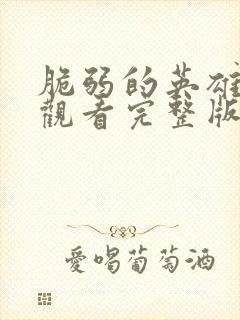 脆弱的英雄
觀看完整版
愛喝葡萄酒